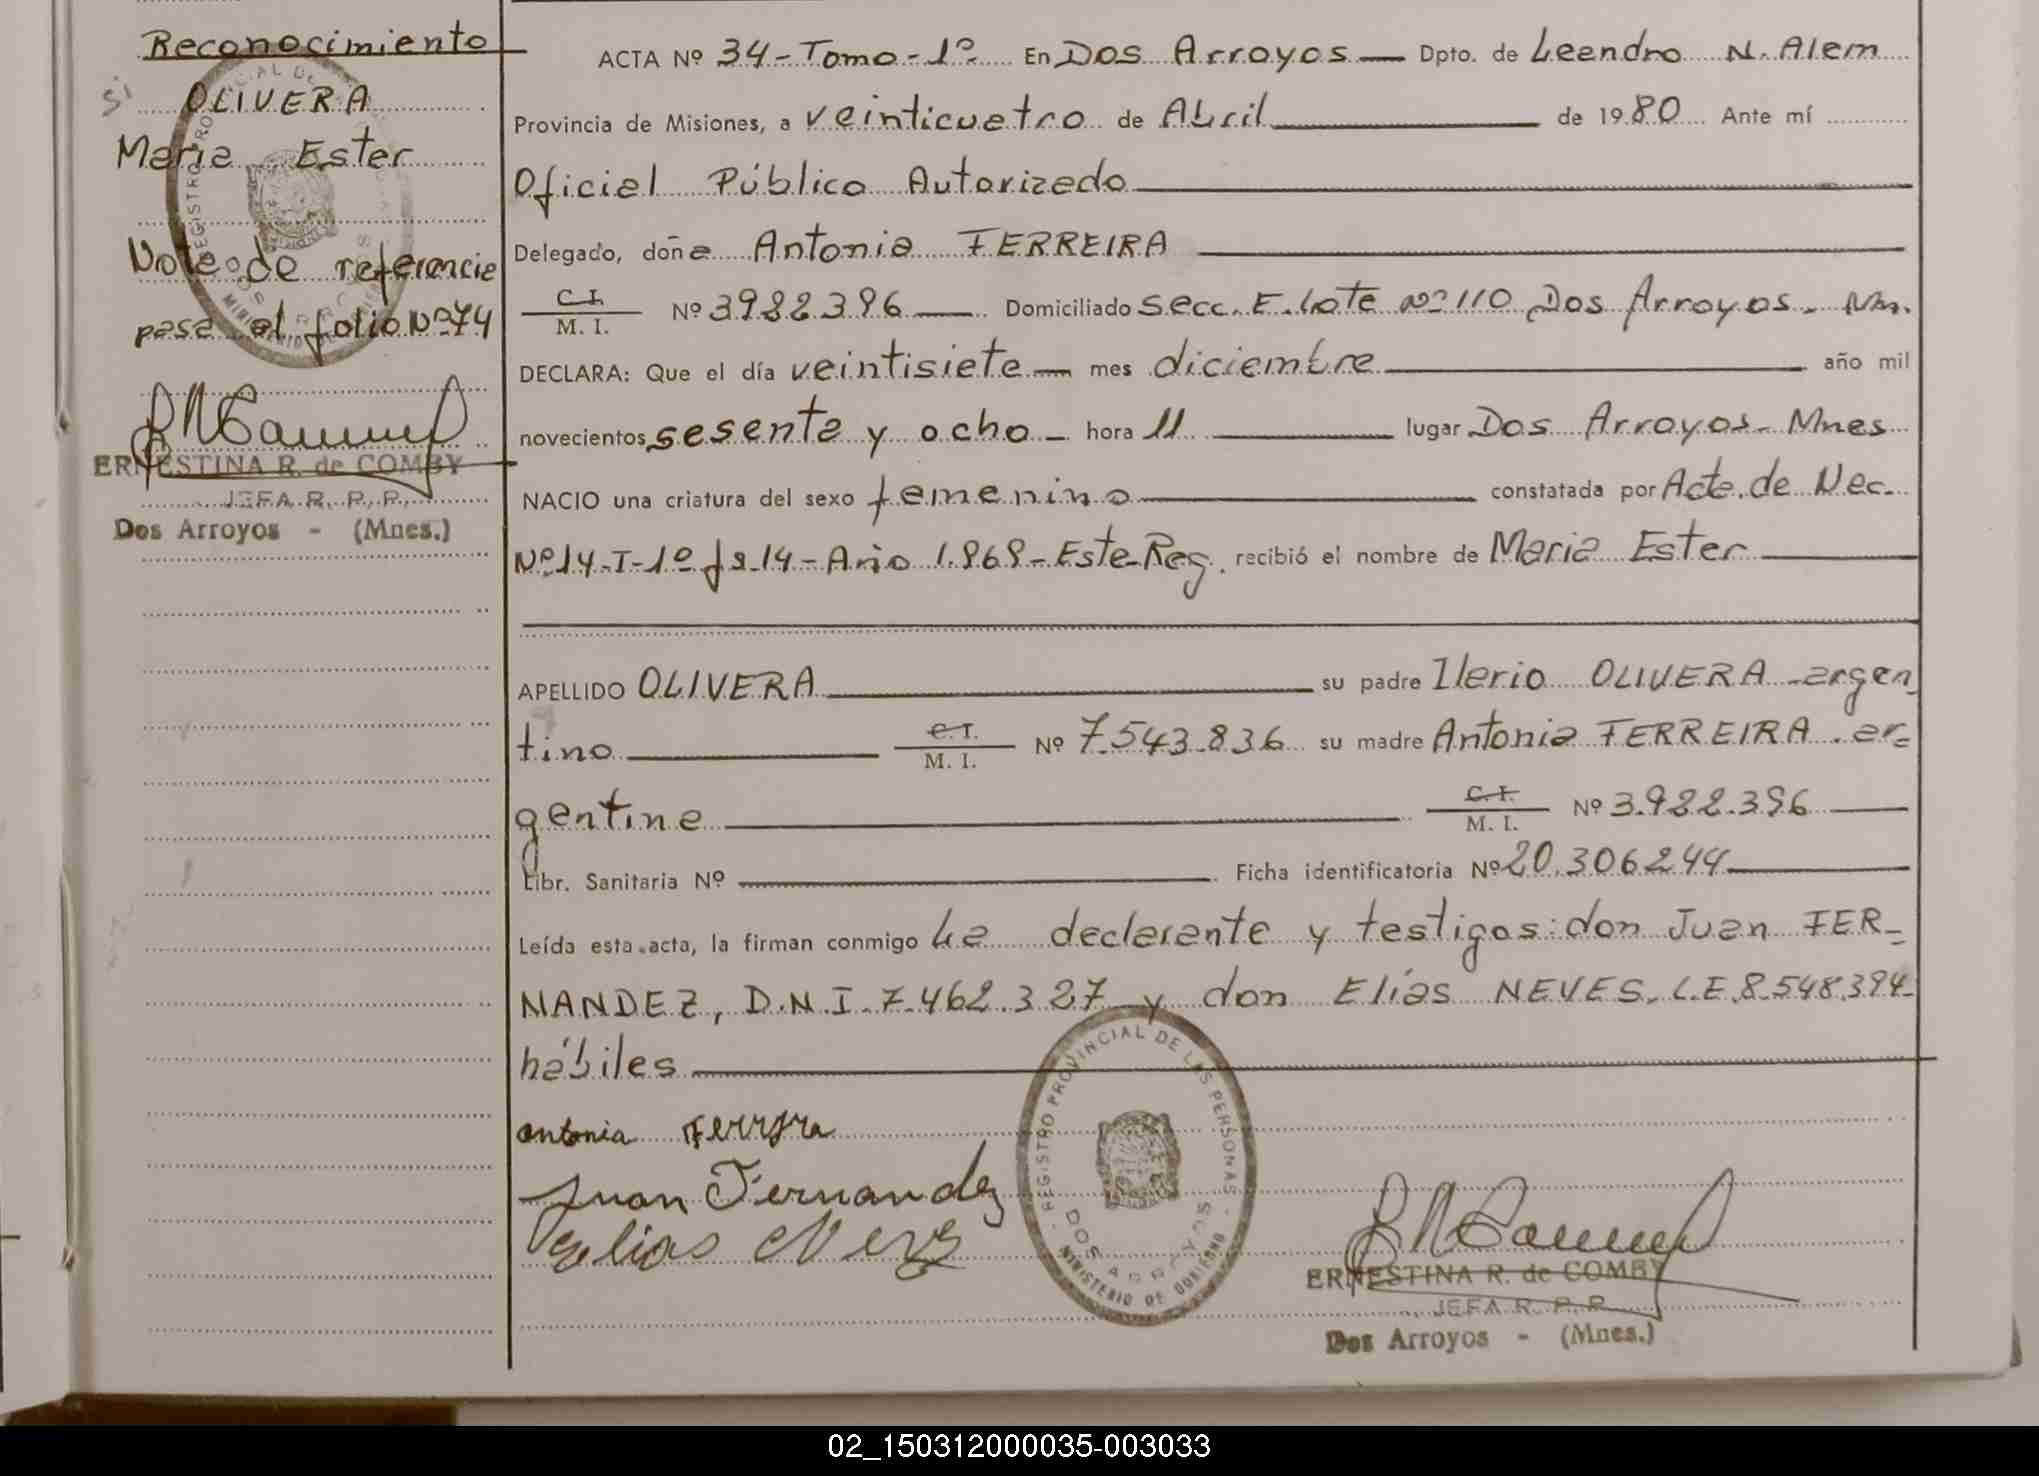 Reconocimiento
Si
OLIVERA
Maria Ester
Nota de referencia
pasa al folio Nº 74
ERNESTINA R. de COMBY
JEFA R. P. P.
Dos Arroyos - (Mnes.)
ACTA Nº 34 - Tomo - 1º En Dos Arroyos — Dpto. de Leandro N. Alem
Provincia de Misiones, a veinticuatro de Abril de 1980 Ante mí
Oficial Público Autorizado
Delegado, doña Antonia FERREIRA
C.I. M. I. Nº 3982396 Domiciliado Secc. E. Lote Nº 110 Dos Arroyos -
DECLARA: Que el día veintisiete — mes diciembre año mil
novecientos sesenta y ocho - hora 11 lugar Dos Arroyos - Mnes
NACIO una criatura del sexo femenino constatada por Acta de Nac.
Nº 14-T-1º fº 14 - Año 1.969 - Este Reg. recibió el nombre de Maria Ester
APELLIDO OLIVERA su padre Ilario OLIVERA - argen
tino C.I. M. I. Nº 7.543.836 su madre Antonia FERREIRA - ar-
gentina C.I. M. I. Nº 3.982.396
Libr. Sanitaria Nº Ficha identificatoria Nº 20.306244
Leída esta acta, la firman conmigo La declarante y testigos: don Juan FER-
NANDEZ, D.N.I. 7.462.327 y don Elías NEVES, L.E. 8.548.394-
hábiles
antonia Ferrera
Juan Fernandez
Elias Neves
REGISTRO PROVINCIAL DE LAS PERSONAS
DOS ARROYOS
MINISTERIO DE GOBIERNO
ERNESTINA R. de COMBY
JEFA R. P. P.
Dos Arroyos - (Mnes.)
02_150312000035-003033